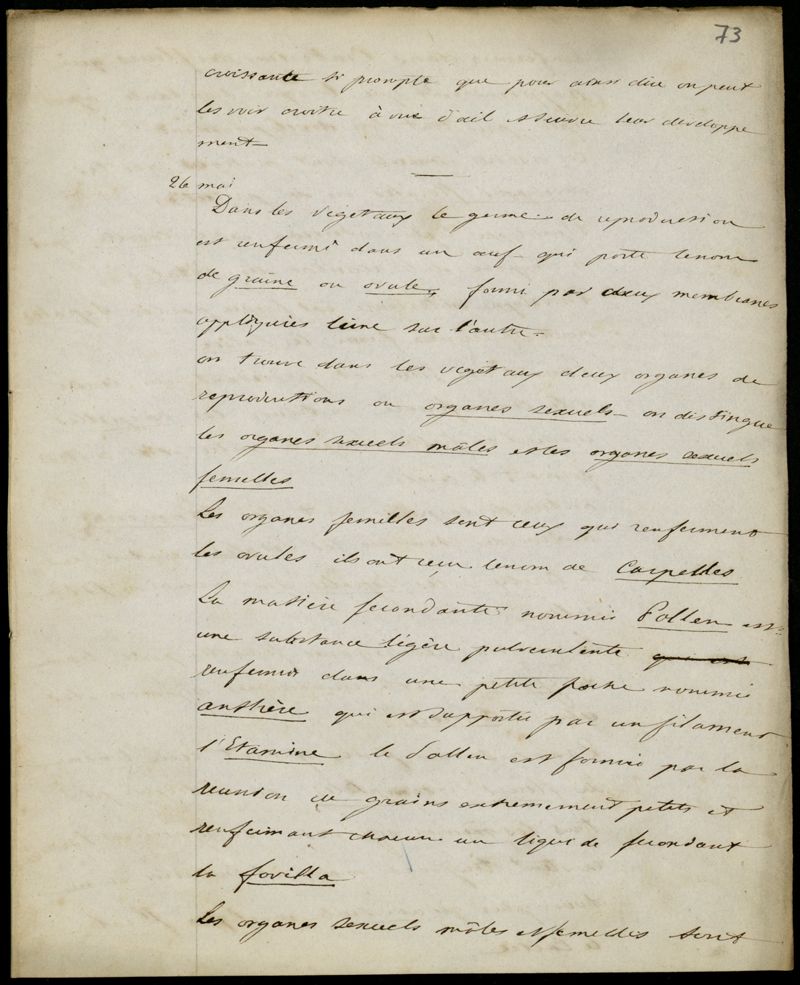 73
croissante si prompte que pour ainsi dire on peut
les voir croitre à vue d'œil et suivre leur developpe
ment
26 mai
Dans les végétaux le germe de reproduction
est renfermé dans un œuf qui porte le nom
de graine ou ovule, formé par deux membranes
appliquées l'une sur l'autre.
on trouve dans les végétaux deux organes de
reproductions ou organes sexuels on distingue
les organes sexuels mâles et les organes sexuels
femelles
Les organes femelles sont ceux qui renferment
les ovules ils ont reçu le nom de Carpelles
La matière fecondante nommée Pollen est
une substance légère pulverulente qui est
renfermé dans une petite poche nommée
anthère qui est supportée par un filament
l'Etamine le Pollen est formé par la
reunion de grains extremement petits et
renfermant chacun un liquide fecondant
la fovilla
Les organes sexuels mâles et femelles sont